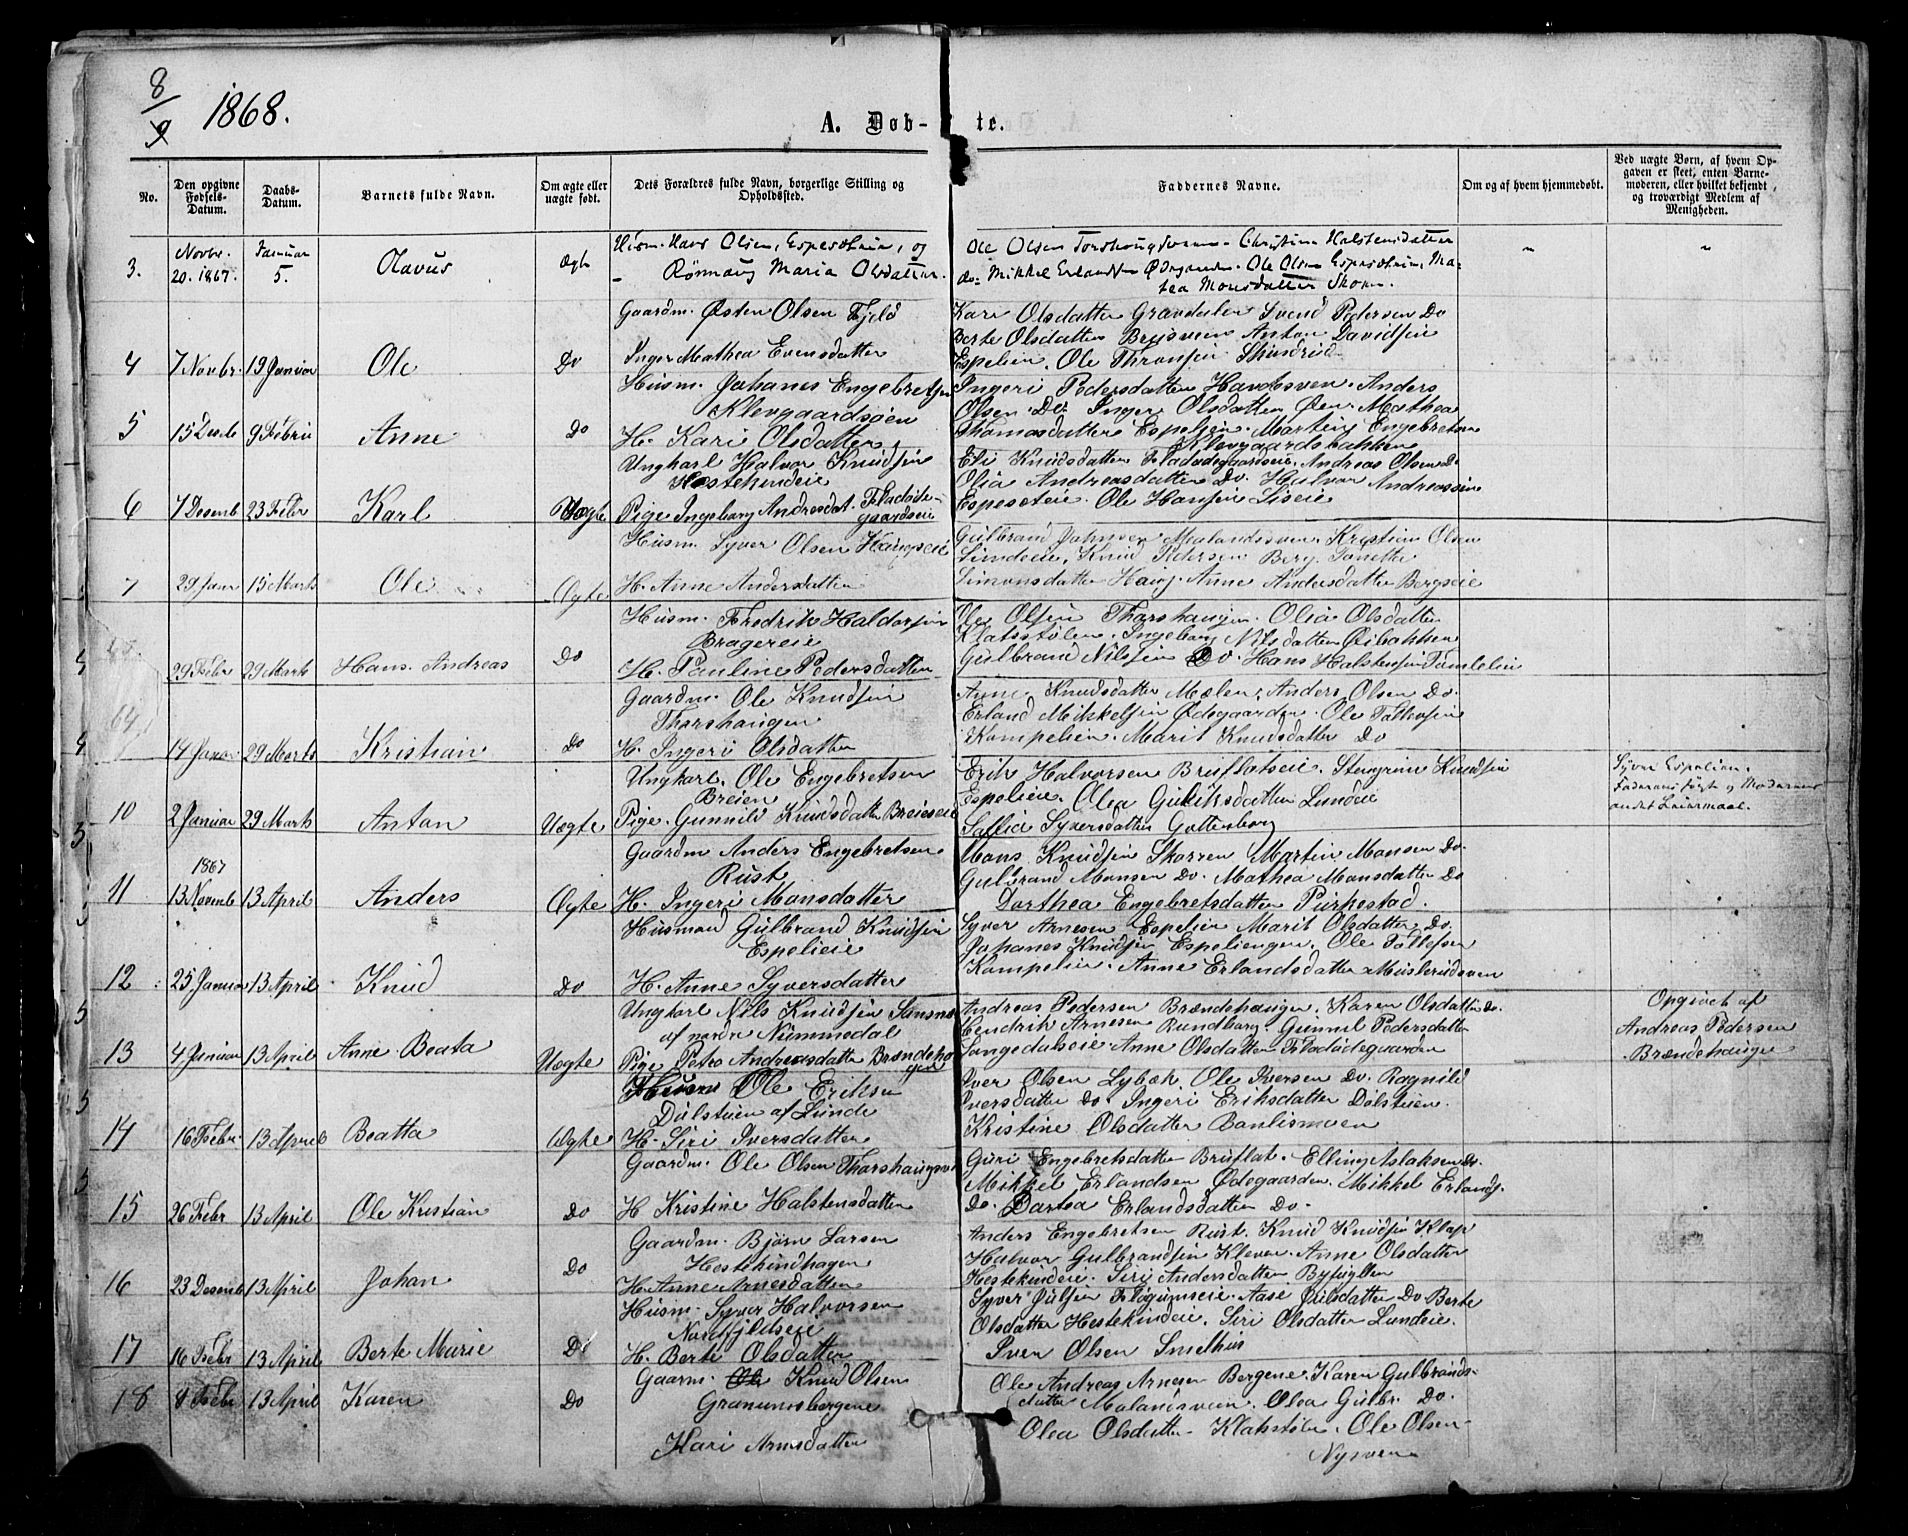 8/9 1868.
A. Døb- te.
No.
Den opgivne Fødsels-Datum.
Daabs-Datum.
Barnets fulde Navn.
Om ægte eller uægte født.
Dets Forældres fulde Navn, borgerlige Stilling og Opholdssted.
Faddernes Navne.
Om og af hvem hjemmedøbt.
Ved uægte Børn, af hvem Opgaven er skeet, enten Barnemoderen, eller hvilket bekjendt og troværdigt Medlem af Menigheden.
3. Novbr. 20. 1867. Januar 5. Olavus Ægte
Husm. Hans Olsen, Espesetheie, og
Rønnaug Maria Olsdatter.
Ole Olsen Torshougsveen - Christine Halstensdatter
do- Mikkel Erlandsen Ødegaarden. Ole Olsen Espesetheie, Ma-
tea Monsdatter Skoren.
4 7 Novbr. 19 Januar Ole Do
Gaardm. Østen Olsen Fjeld
Inger Mathea Evensdatter
Kari Olsdatter Gravdalen Svend Pedersen Do
Berte Olsdatter Anton Davidsen
Espelien. Ole Thronsen
5 15 Desb 9 Febru Anne Do
Husm. Johanes Engebretsen
Klevgaardsøen
H. Kari Olsdatter
Ingeri Pedersdatter Anders
Olsen Do. Inger Olsdatter Øen. Mathea
Thomasdatter Espelien. Martin Engebretsen
Klevgaardsbakken
6 7 Desemb 23 Febr Karl Uægte
Ungkarl Halvor Knudsen
Hestekindeie
Pige Ingeborg Andresdat. Fladøde-
gaardseie
Eli Knudsdatter Fladødegaardseie. Andreas Olsen Do
Olia Andreasdatter Do. Halvor Andreassen
Espeseteie. Ole Hansen Liseie
7 29 Jan 15 Marts Ole Ægte
Husm. Syver Olsen Haugseie
H. Anne Andersdatter
Gulbrand Johnsen Mælandsveen. Kristian Olsen
Lundeie. Knud Pedersen Berg. Tonette
Simonsdatter Haug. Anne Andersdatter Bergseie
29 Febr 29 Marts Hans Andreas Do
Husm. Fredrik Haldorsen
Bragereie
H. Pauline Pedersdatter
Ole Olsen Thorshaugen. Olia Olsdatter
Klatsstølen. Ingeborg Nilsdatter Øibakken
Gulbrand Nilsen Do. Hans Halstensen Tømleleie
14 Januar 29 Marts Kristian Do
Gaardm. Ole Knudsen
Thorshaugen
H. Ingeri Olsdatter
Anne Knudsdatter Mælen. Anders Olsen Do.
Erland Mikkelsen Ødegaarden. Ole Tollefsen
Kampelien. Marit Knudsdatter Do
10 2 Januar 29 Marts Anton Uægte
Ungkarl. Ole Engebretsen
Breien
Pige. Gunnild Knudsdatter Breieseie
Erik Halvorsen Bruflatseie. Stengrim Knudsen
Espelieie. Olea Guliksdatter Lundeie
Syversdatter Gottenborg
Syver Espelien.
Faderens først og Moderens
andet Leiermaal.
11 1867 13 Novemb 13 April Anders Ægte
Gaardm Anders Engebretsen
Rust
H. Ingeri Monsdatter
Mons Knudsen Skorren Martin Monsen Do.
Gulbrand Monsen Do. Mathea Monsdatter Do
Dorthea Engebretsdatter Purkestad.
12 25 Januar 13 April Knud Do
Husmand Gulbrand Knudsen
Espelieie
H. Anne Syversdatter
Syver Arnesen Espelien Marit Olsdatter Do.
Johanes Knudsen Espeliengen. Ole Tollefsen
Kampelien. Anne Erlandsdatter Muslerudsveen
13 4 Januar 13 April Anne Beata Uægte
Ungkarl Nils Knudsen
af nordre Nummedal
Pige Petra Andreasdatter Brændeho
gen
Andreas Pedersen Brændehaugen. Karen Olsdatter Do.
Hendrik Arnesen Rundborg. Gunnil Pedersdatter
Langedalseie Anne Olsdatter Fladødegaarden
Opgivet af
Andreas Pedersen
Brændehaugen
14 16 Febr. 13 April Beatta Ægte
Husm Ole Eriksen
Dølstuen af Lunde
H. Siri Iversdatter
Iver Olsen Lybæk. Ole Iversen Do. Ragnild
Iversdatter Do Ingeri Eriksdatter Dølstuen.
Kristine Olsdatter Banlismoen
15 26 Febr 13 April Ole Kristian Do
Gaardm. Ole Olsen Thorshaugsve
H Kristine Halstensdatter
Guri Engebretsdatter Bruflat. Elling Aslaksen Do.
Mikkel Erlandsen Ødegaarden. Mikkel Erlands.
Do. Dartea Erlandsdatter Do.
16 23 Desemb 13 April Johan Do
Gaardm. Bjørn Larsen
Hestekindhagen
H. Anne Arnesdatter
Anders Engebretsen Rust. Knud Knudsen Klop
Halvor Gulbrandsen Kleven. Anne Olsdatter
Hestekindeie. Siri Andersdatter Byfuglien
17 16 Febr 13 April Berte Marie Do
Husm. Syver Halvorsen
Nordfjeldseie
H. Berte Olsdatter
Syver Julsen Flogumseie. Aase Julsdatter Do Berte
Olsdatter Hestekindeie. Siri Olsdatter Lundeie.
Iven Olsen Smelhus
18 4 Febr 13 April Karen Do
Gaarm. Ole Knud Olsen
Granumsbergene
Kari Arnesdatter
Ole Andreas Arnesen Bergene. Karen Gulbrands-
datter Mælandsveen. Olea Gulbr. Do.
Olea Olsdatter Klatstølen. Ole Olsen
Nysveen